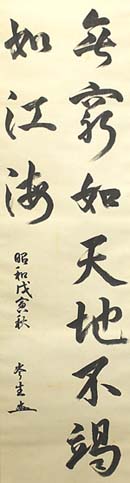 無窮如天地不竭
如江海
昭和戊寅秋